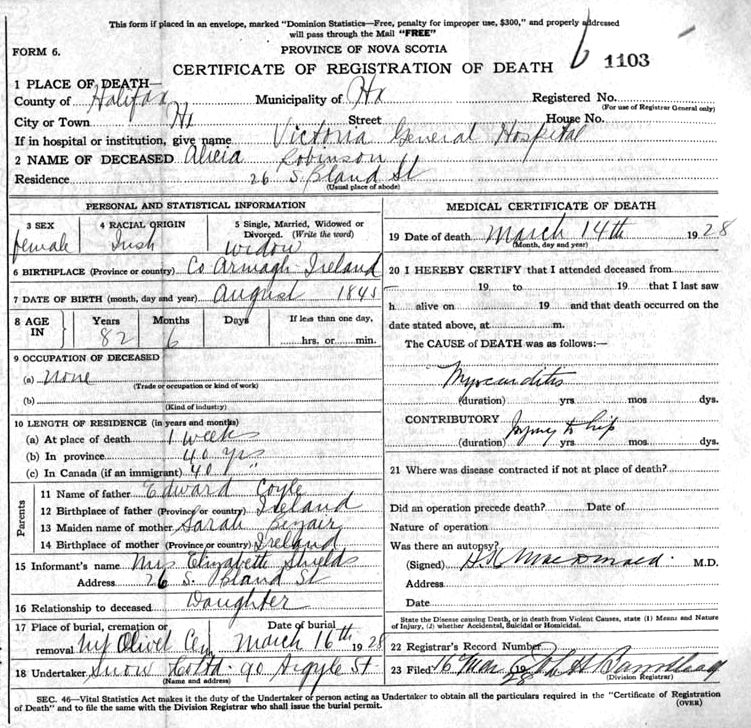 This form if placed in an envelope, marked "Dominion Statistics—Free, penalty for improper use, $300," and properly addressed
will pass through the Mail "FREE"
FORM 6.
PROVINCE OF NOVA SCOTIA
CERTIFICATE OF REGISTRATION OF DEATH 6 1103
1 PLACE OF DEATH—
County of Halifax Municipality of Hx Registered No.
(For use of Registrar General only)
City or Town Hx Street House No.
If in hospital or institution, give name Victoria General Hospital
2 NAME OF DECEASED Alicia Robinson
Residence 26 S. Bland St
(Usual place of abode)
PERSONAL AND STATISTICAL INFORMATION
3 SEX 4 RACIAL ORIGIN 5 Single, Married, Widowed or
Divorced. (Write the word)
female Irish Widow
6 BIRTHPLACE (Province or country) Co Armagh Ireland
7 DATE OF BIRTH (month, day and year) August 1845
8 AGE IN Years Months Days If less than one day,
82 6 hrs. or min.
9 OCCUPATION OF DECEASED
(a) none
(Trade or occupation or kind of work)
(b)
(Kind of industry)
10 LENGTH OF RESIDENCE (in years and months)
(a) At place of death 1 week
(b) In province 40 yrs
(c) In Canada (if an immigrant) 40 "
Parents
11 Name of father Edward Coyle
12 Birthplace of father (Province or country) Ireland
13 Maiden name of mother Sarah
14 Birthplace of mother (Province or country) Ireland
15 Informant's name Mrs Elizabeth Shields
Address 26 S. Bland St
16 Relationship to deceased Daughter
17 Place of burial, cremation or Date of burial
removal Mt Olivet Cem March 16th 1928
18 Undertaker Snow Co Ltd. 90 Argyle St
(Name and address)
MEDICAL CERTIFICATE OF DEATH
19 Date of death March 14th 1928
(Month, day and year)
20 I HEREBY CERTIFY that I attended deceased from
19 to 19 that I last saw
h alive on 19 and that death occurred on the
date stated above, at m.
The CAUSE of DEATH was as follows:—
Myocarditis
(duration) yrs mos dys.
CONTRIBUTORY Injury to hip
(duration) yrs mos dys.
21 Where was disease contracted if not at place of death?
Did an operation precede death? Date of
Nature of operation
Was there an autopsy?
(Signed) MacDonald M.D.
Address
Date
State the Disease causing Death, or in death from Violent Causes, state (1) Means and Nature
of Injury, (2) whether Accidental, Suicidal or Homicidal.
22 Registrar's Record Number
23 Filed 16 Mar 1928
(Division Registrar)
SEC. 46—Vital Statistics Act makes it the duty of the Undertaker or person acting as Undertaker to obtain all the particulars required in the "Certificate of Registration
of Death" and to file the same with the Division Registrar who shall issue the burial permit. (OVER)